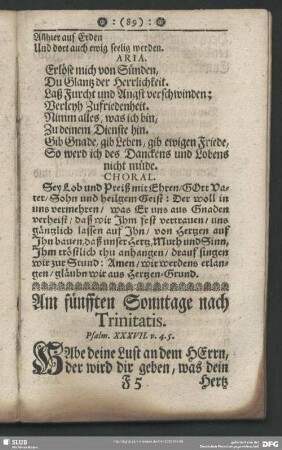 : (89) :
Allhier auf Erden
Und dort auch ewig seelig werden.
ARIA.
Erlöse mich von Sünden,
Du Glantz der Herrlichkeit.
Laß Furcht und Angst verschwinden;
Verleyh Zufriedenheit.
Nimm alles, was ich bin,
Zu deinem Dienste hin.
Gib Gnade, gib Leben, gib ewigen Friede,
So werd ich des Danckens und Lobens
nicht müde.
CHORAL.
Sey Lob und Preiß mit Ehren/ GOtt Va-
ter/ Sohn und heilgem Geist: Der woll in
uns vermehren/ was Er uns aus Gnaden
verheist/ daß wir Ihm fest vertrauen/ uns
gäntzlich lassen auf Ihn/ von Hertzen auf
Ihn bauen, daß unser Hertz, Muth und Sinn,
Ihm tröstlich thu anhangen/ drauf singen
wir zur Stund: Amen/ wir werdens erlan-
gen/ gläubn wir aus Hertzen-Grund.
Am fünfften Sonntage nach
Trinitatis.
Psalm. XXXVII. v. 4. 5.
HAbe deine Lust an dem HErrn,
der wird dir geben, was dein
F 5 Hertz
SLUB
DFG